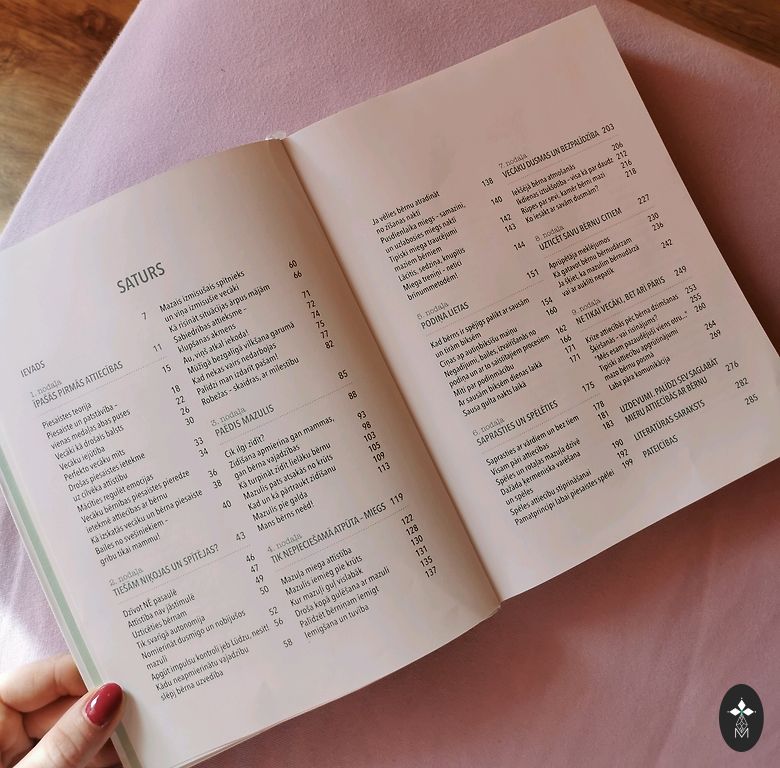 SATURS
IEVADS 7
1. nodaļa
ĪPAŠĀS PIRMĀS ATTIECĪBAS 11
Piesaistes teorija 15
Piesaiste un patstāvība –
vienas medaļas abas puses 18
Vecāki kā drošais balsts 22
Vecāku iejūtība 26
Perfekto vecāku mīts 30
Drošas piesaistes ietekme
uz cilvēka attīstību 33
Mācīties regulēt emocijas 34
Vecāku bērnības piesaistes pieredze
ietekmē attiecības ar bērnu 36
Kā izskatās vecāku un bērna piesaiste 38
Bailes no svešiniekiem –
gribu tikai mammu! 40
2. nodaļa
TIEŠĀM NIĶOJAS UN SPĪTĒJAS? 43
Dzīvot NĒ pasaulē 46
Attīstība nav jāstimulē 47
Uzticēties bērnam 49
Tik svarīgā autonomija 50
Nomierināt dusmīgo un nobijušos
mazuli 52
Apgūt impulsu kontroli jeb Lūdzu, nesit! 56
Kādu neapmierinātu vajadzību
slēpj bērna uzvedība 58
Mazais izmisušais spītnieks
un viņa izmisušie vecāki 60
Kā risināt situācijas ārpus mājām 66
Sabiedrības attieksme –
klupšanas akmens 71
Au, viņš atkal iekoda! 72
Mūžīgā bezgalīgā vilkšana garumā 74
Kad nekas vairs nedarbojas 75
Palīdzi man izdarīt pašam! 77
Robežas – skaidras, ar mīlestību 82
3. nodaļa
PAĒDIS MAZULIS 85
Cik ilgi zīdīt? 88
Zīdīšana apmierina gan mammas,
gan bērna vajadzības 93
Kā turpināt zīdīt lielāku bērnu 98
Mazulis pats atsakās no krūts 103
Kad un kā pārtraukt zīdīšanu 105
Mazulis pie galda 109
Mans bērns neēd! 113
4. nodaļa
TIK NEPIECIEŠAMĀ ATPŪTA – MIEGS 119
Mazuļa miega attīstība 122
Mazulis iemieg pie krūts 128
Kur mazuļi guļ vislabāk 130
Droša kopā gulēšana ar mazuli 131
Palīdzēt bērniņam iemigt 135
Iemigšana un tuvība 137
Ja vēlies bērnu atradināt
no zīšanas naktī 138
Pusdienlaika miegs – samazini,
un uzlabosies miegs naktī 140
Tipiski miega traucējumi 142
maziem bērniem 143
Miega treniņi – neticī
brīnummetodēm! 144
5. nodaļa
PODIŅA LIETAS 151
Kad bērns ir spējīgs palikt ar sausām
un tīrām biksēm 154
Ciņas ap autobiksīšu maiņu 160
Nepadījumi, bailes, izvairīšanās no
podiņa un ar to saistītajiem procesiem 162
Mīti par podinmācību 166
Ar sausām biksēm dienas laikā 171
Sausa gulta nakts laikā 171
6. nodaļa
SAPRASTIES UN SPĒLĒTIES 175
Saprasties ar vārdiem un bez tiem 178
Visam pāri attiecības 181
Spēles un rotaļas mazuļa dzīvē 183
Dažāda ķermeniskā valēšana
un spēles 190
Spēles attiecību stiprināšanai 192
Pamatprincipi labai piesaistes spēlei 199
7. nodaļa
VECĀKU DUSMAS UN BEZPALĪDZĪBA 203
Iekšējā bērna atmošanās 206
Ikdienas iztukšotība – visa kā par daudz 212
Rūpes par sevi, kamēr bērni mazi 216
Ko iesākt ar savām dusmām? 218
8. nodaļa
UZTICĒT SAVU BĒRNU CITIEM 227
Aprūpētāja meklējumos 230
Kā gatavot bērnu bērnudārzam 236
Ja šķiet, ka mazulim bērnudārzā
vai ar auklīti nepatīk 242
9. nodaļa
NE TIKAI VECĀKI, BET ARĪ PĀRIS 249
Krīze attiecībās pēc bērna dzimšanas 253
Tipiski attiecību apgrūtinājumi 260
Laba pāra komunikācija 269
UZDEVUMI. PALĪDZI SEV SAGLABĀT
MIERU ATTIECĪBĀS AR BĒRNU 276
LITERATŪRAS SARAKSTS 282
PATEICĪBAS 285